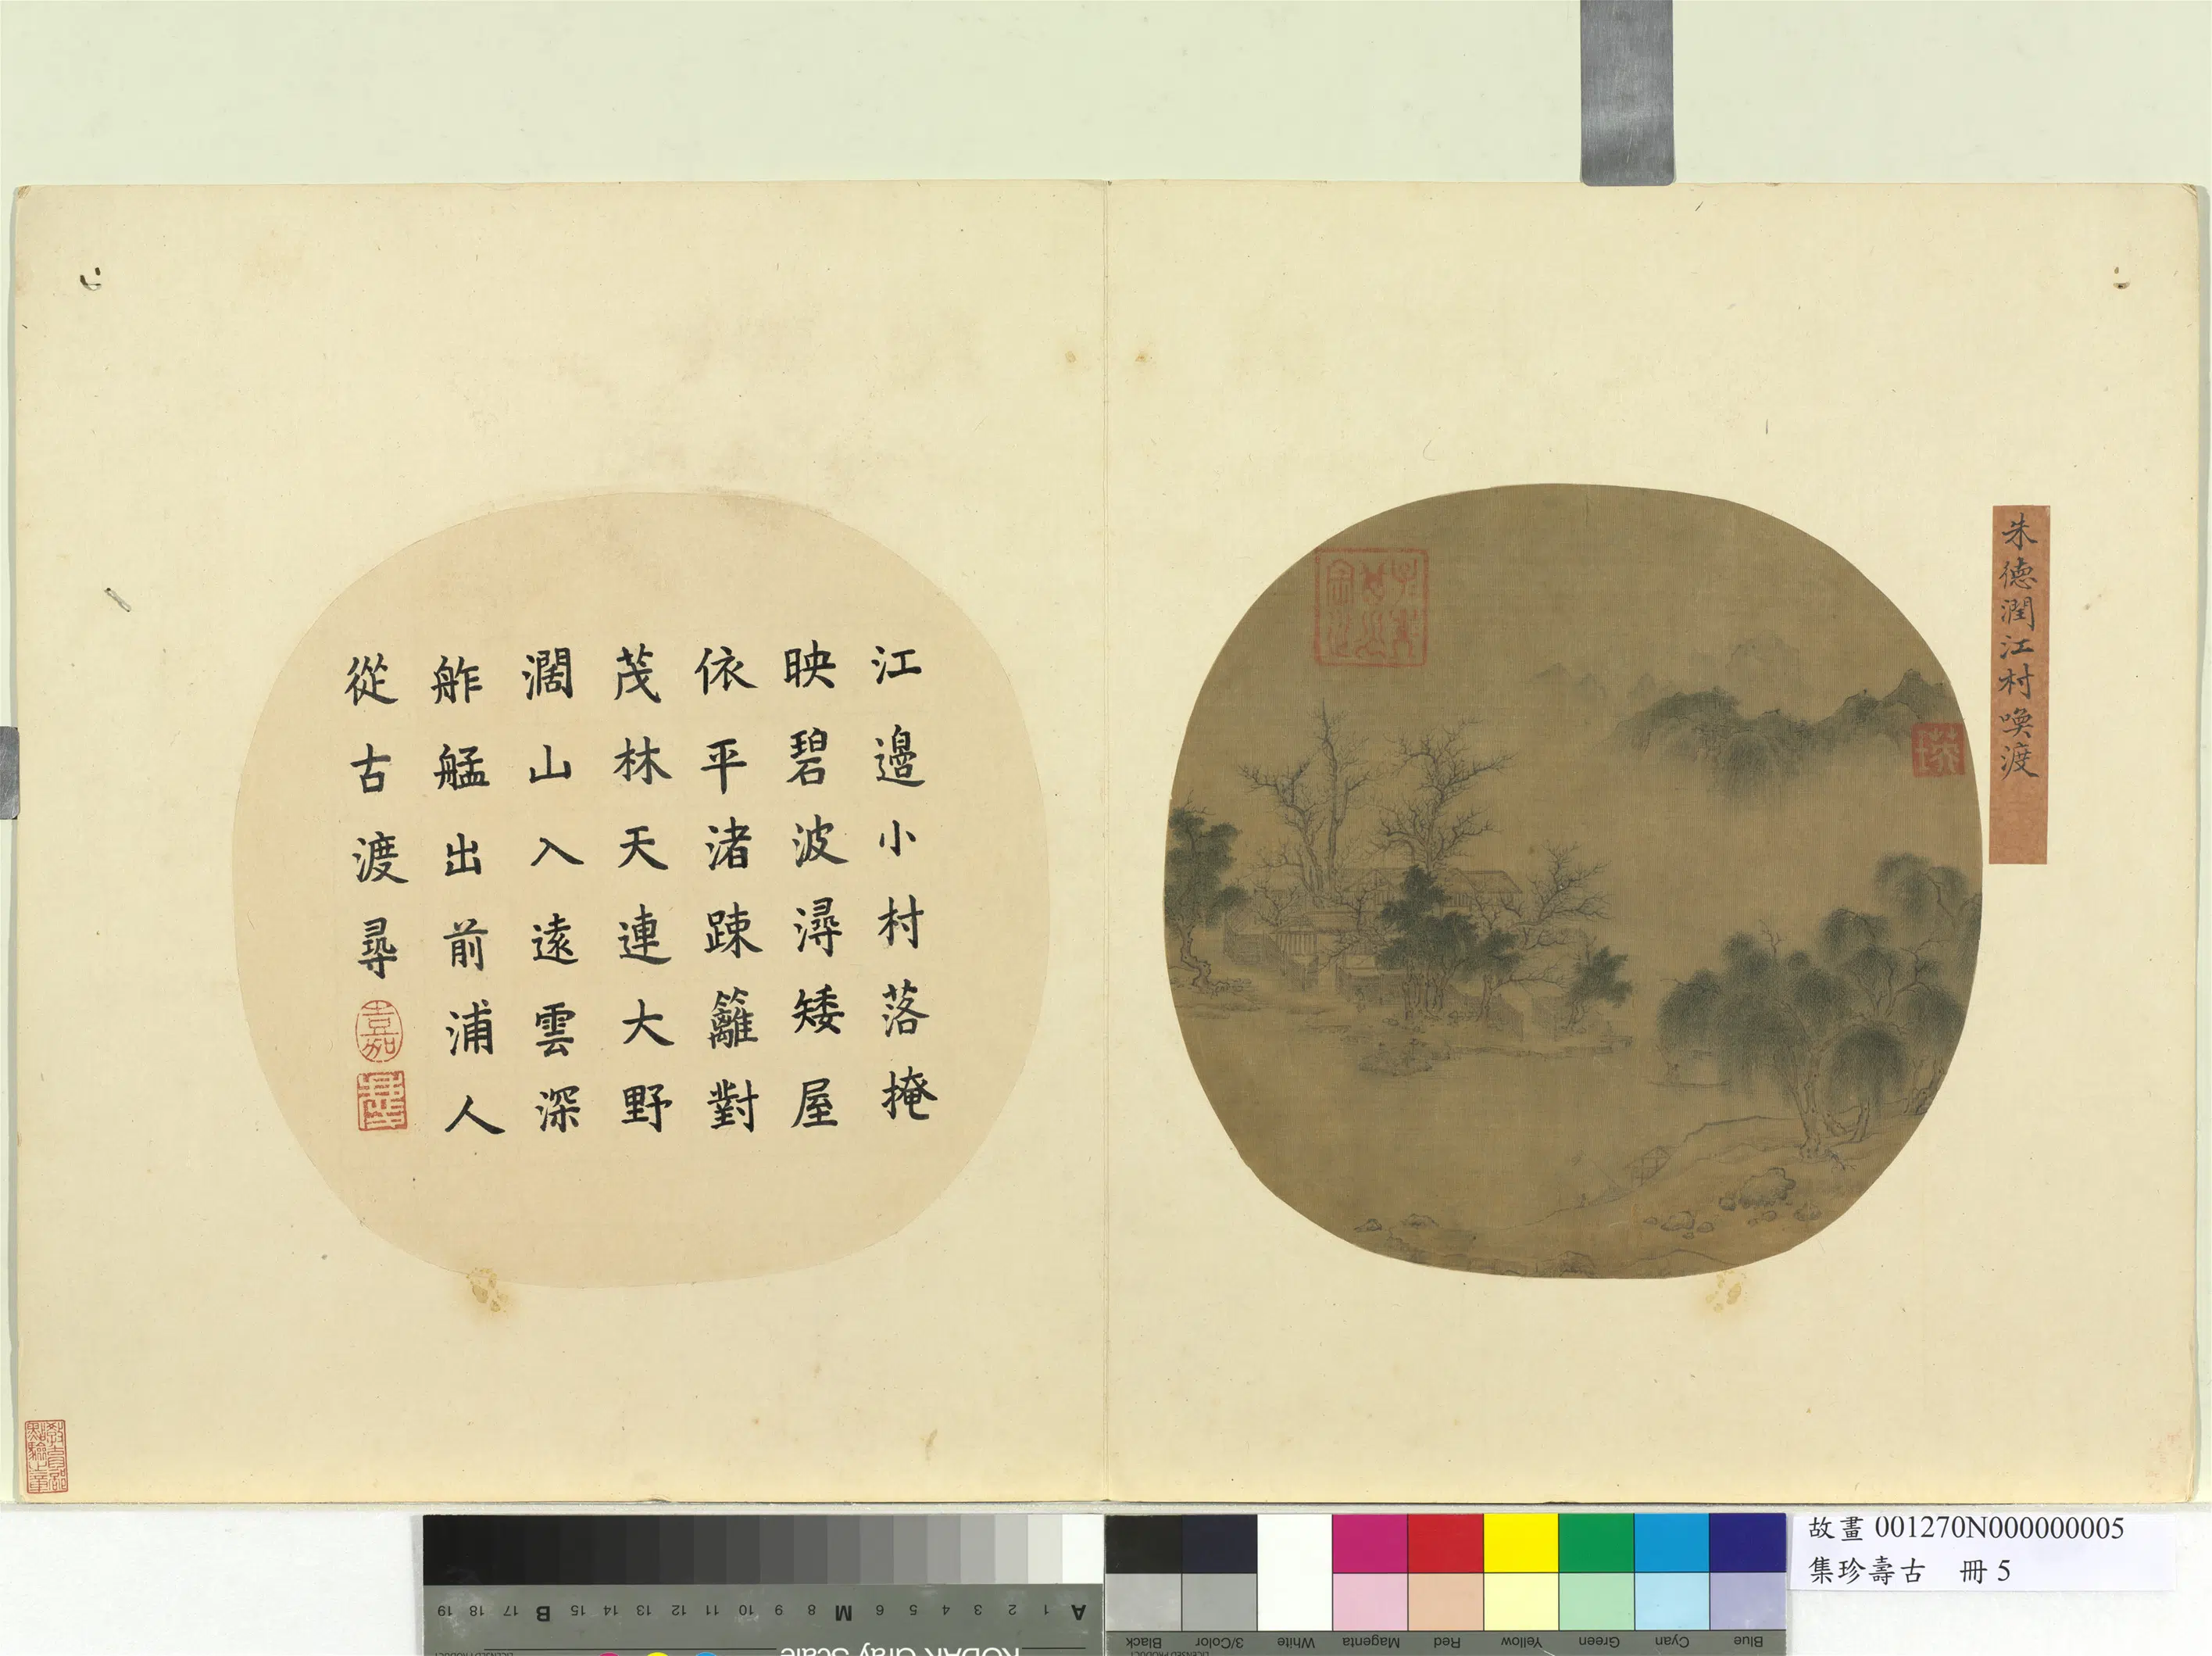 朱德潤江村喚渡
江邉小村落掩
映碧波潯矮屋
依平渚踈籬對
茂林天連大野
濶山入遠雲深
舴艋出前浦人
從古渡尋
嘉
故畫 001270N000000005
集珍壽古 冊 5
A 1 2 3 4 5 6 M 8 9 10 11 12 13 14 15 B 17 18 19
KODAK Gray Scale
Blue Cyan Green Yellow Red Magenta White 3/Color Black